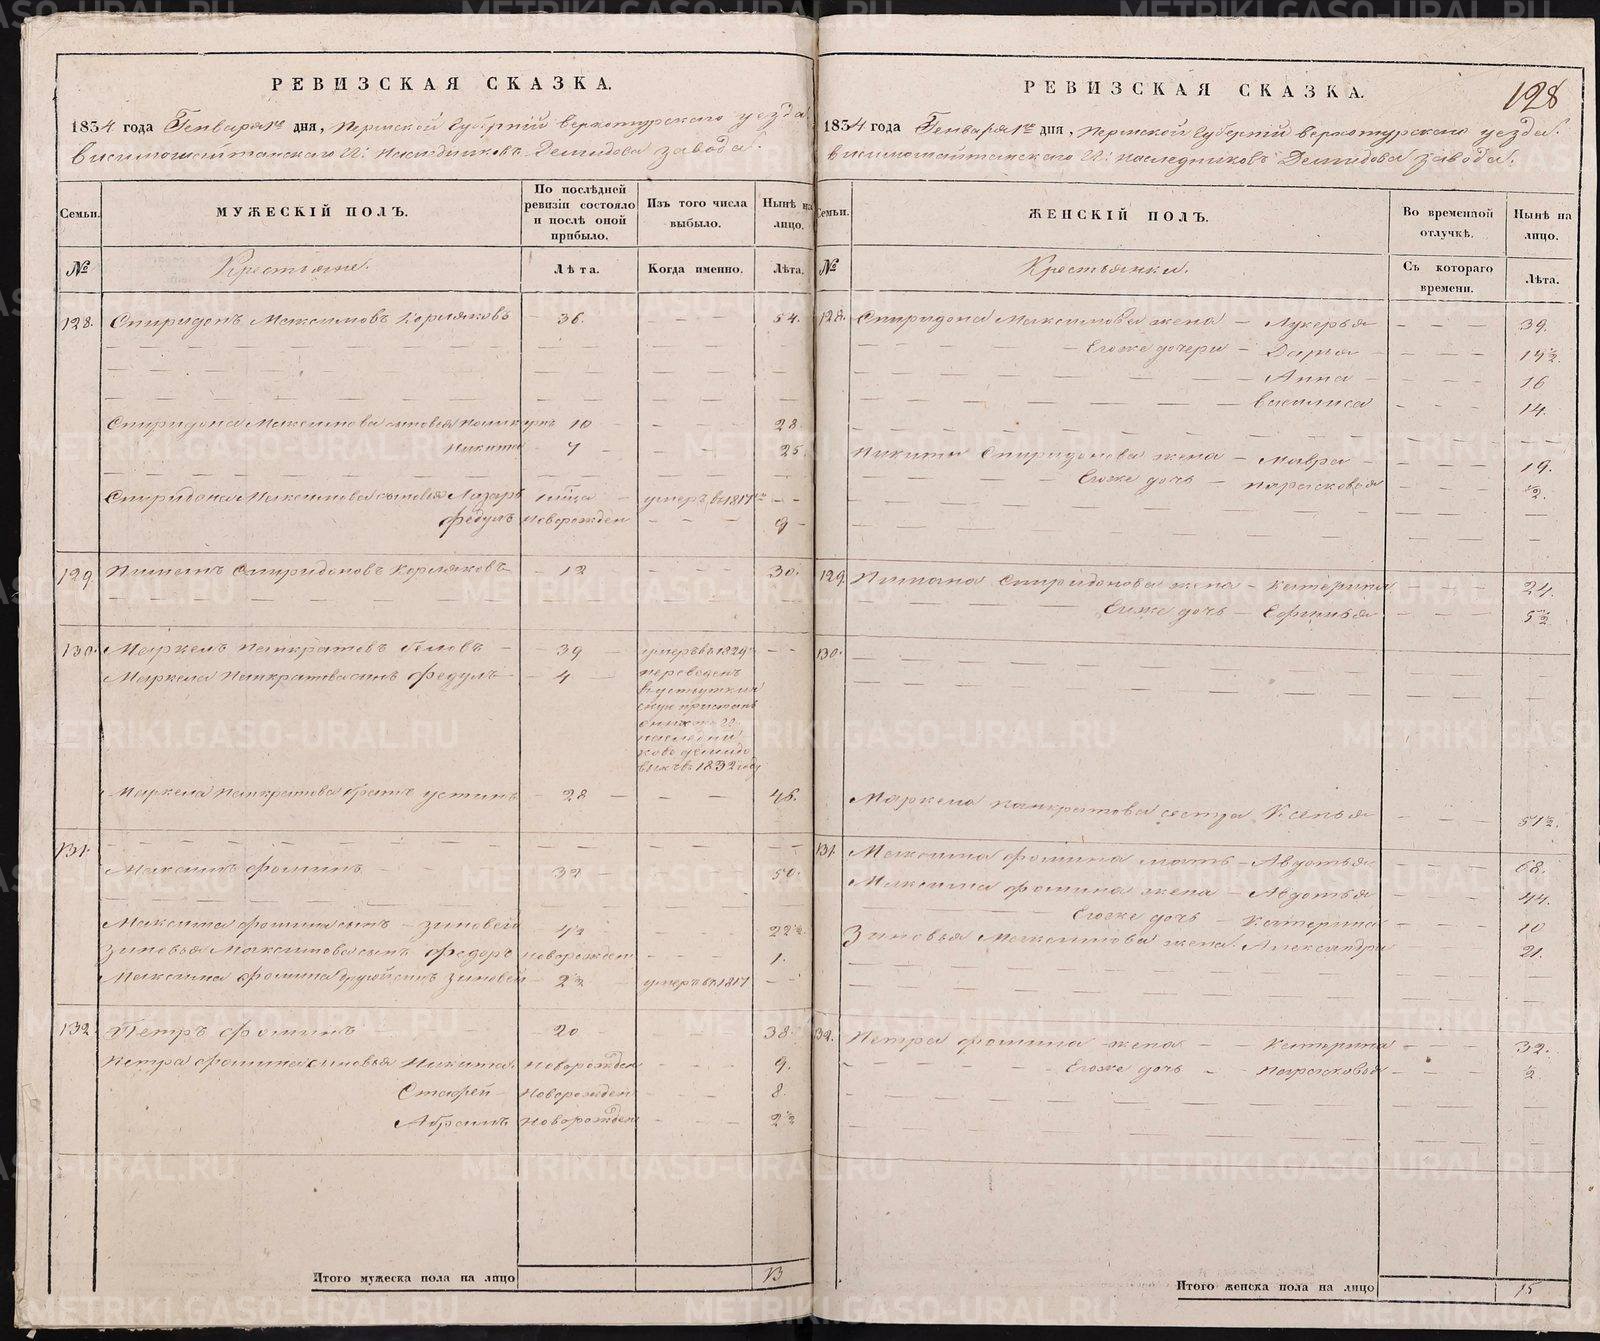 РЕВИЗСКАЯ СКАЗКА.
1834 года Генваря 1го дня, Пермской Губерніи Верхотурскаго уезда
Висимошайтанскаго Н: Наследниковъ Демидова завода.
Семьи.
МУЖЕСКІЙ ПОЛЪ.
По послѣдней ревизіи состояло и послѣ оной прибыло.
Изъ того числа выбыло.
Нынѣ на лицо.
№
Крестьяне.
Лѣта.
Когда именно.
Лѣта.
128. Спиридонъ Максимовъ Корляковъ 36. 54.
Спиридона Максимова сыновья 10 28
Никита 7 25
Спиридона Максимова сыновья Лазарь умеръ в 1817
Федулъ новорожден 9
129. Пиманъ Спиридоновъ Корляковъ 12 30.
130. Маркелъ Панкратовъ Беловъ 39 умеръ в 1829
Маркела Панкратова сынъ Федулъ 4 переведенъ
в 1832 году
Маркела Панкратова братъ Устинъ 28 46.
131.
Максимъ Фоминъ 32 50.
Максима Фомина сынъ Зиновей 4½ 22½
Зиновья Максимова сынъ Федоръ новорожден 1.
Максима Фомина сынъ Зиновей 2½ умеръ в 1817
132 Петръ Фоминъ 20 38.
Петра Фомина сыновья Никита новорожден 9.
Стафей новорожден 8.
Абрамъ новорожден 2½
Итого мужеска пола на лицо 13
128
РЕВИЗСКАЯ СКАЗКА.
1834 года Генваря 1го дня, Пермской Губерніи Верхотурскаго уезда.
Висимошайтанскаго Н: наследниковъ Демидова завода.
Семьи.
ЖЕНСКІЙ ПОЛЪ.
Во временной отлучкѣ.
Нынѣ на лицо.
№
Крестьянки.
Съ котораго времени.
Лѣта.
128. Спиридона Максимова жена Лукерья 39.
Егоже дочери Дарья 19½.
Анна 16
Василиса 14.
Никиты Спиридонова жена Мавра 19.
Егоже дочь Парасковья ½.
129. Пимана Спиридонова жена Катерина 24.
Егоже дочь Ефимья 5½
130.
Маркела Панкратова сестра Ксенья 51½.
131. Максима Фомина мать Авдотья 68.
Максима Фомина жена Авдотья 44.
Егоже дочь Катерина 10
Зиновья Максимова жена Александра 21.
132. Петра Фомина жена Катерина 32.
Егоже дочь Парасковья ½
Итого женска пола на лицо 15
METRIKI.GASO-URAL.RU